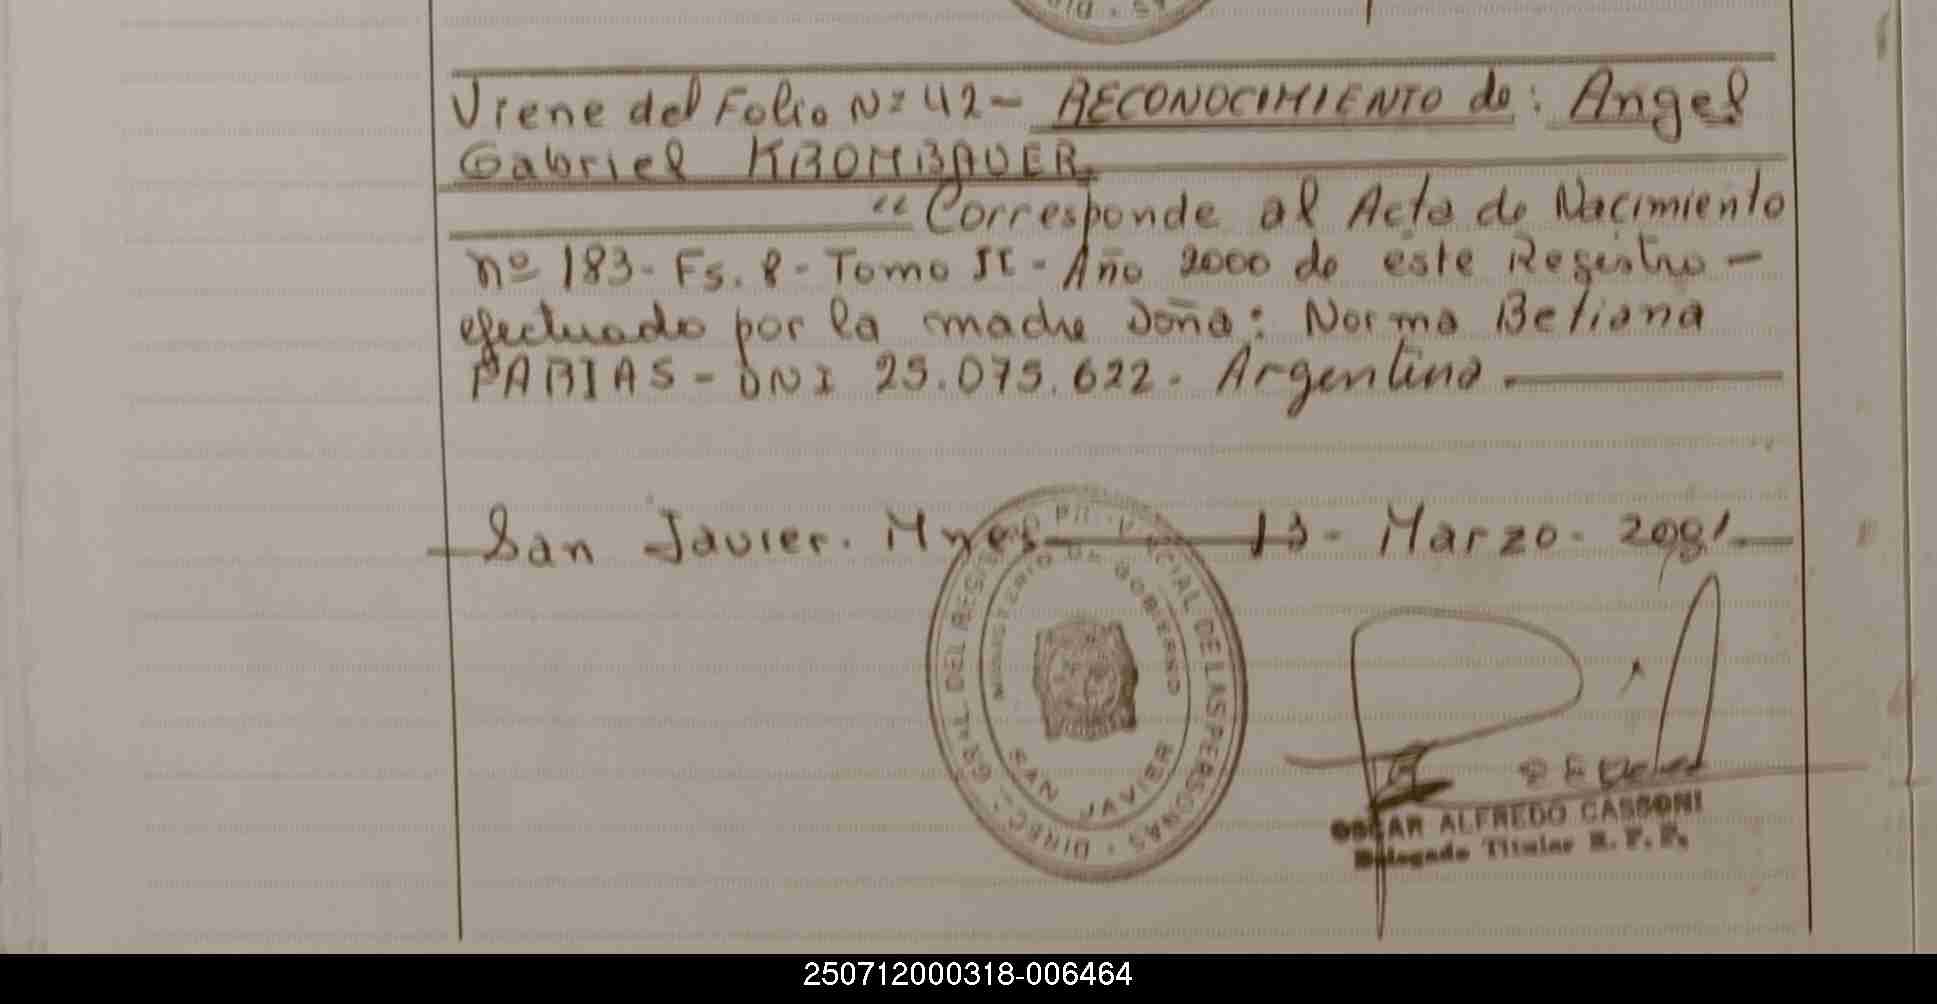 Viene del Folio Nº 42 - RECONOCIMIENTO de: Angel
Gabriel KROMBAUER
" Corresponde al Acta de Nacimiento
nº 183 - Fs. 8 - Tomo II - Año 2000 de este Registro -
efectuado por la madre Doña: Norma Betiana
FARIAS - DNI 25.075.622. Argentina.
San Javier. Mnes 13 - Marzo - 2001
DIREC. GRAL. DEL REGISTRO PROVINCIAL DE LAS PERSONAS
MINISTERIO DE GOBIERNO
SAN JAVIER
OSCAR ALFREDO CASSONI
Delegado Titular R. P. P.
250712000318-006464